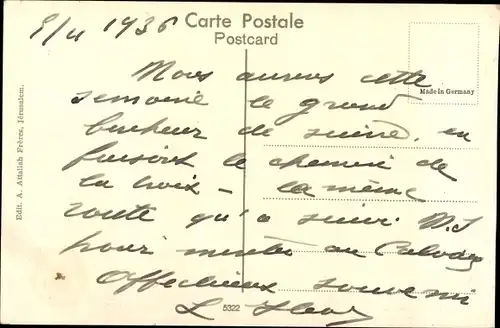 5/4 1936
Carte Postale
Postcard
Made in Germany
Edit. A. Attallah Frères, Jérusalem.
Nous aurons cette
semaine le grand
bonheur de suivre, en
faisant le chemin de
la Croix – la même
route qu'a suivi N.S
pour monter au Calvaire
Affectueux souvenir
L
5322